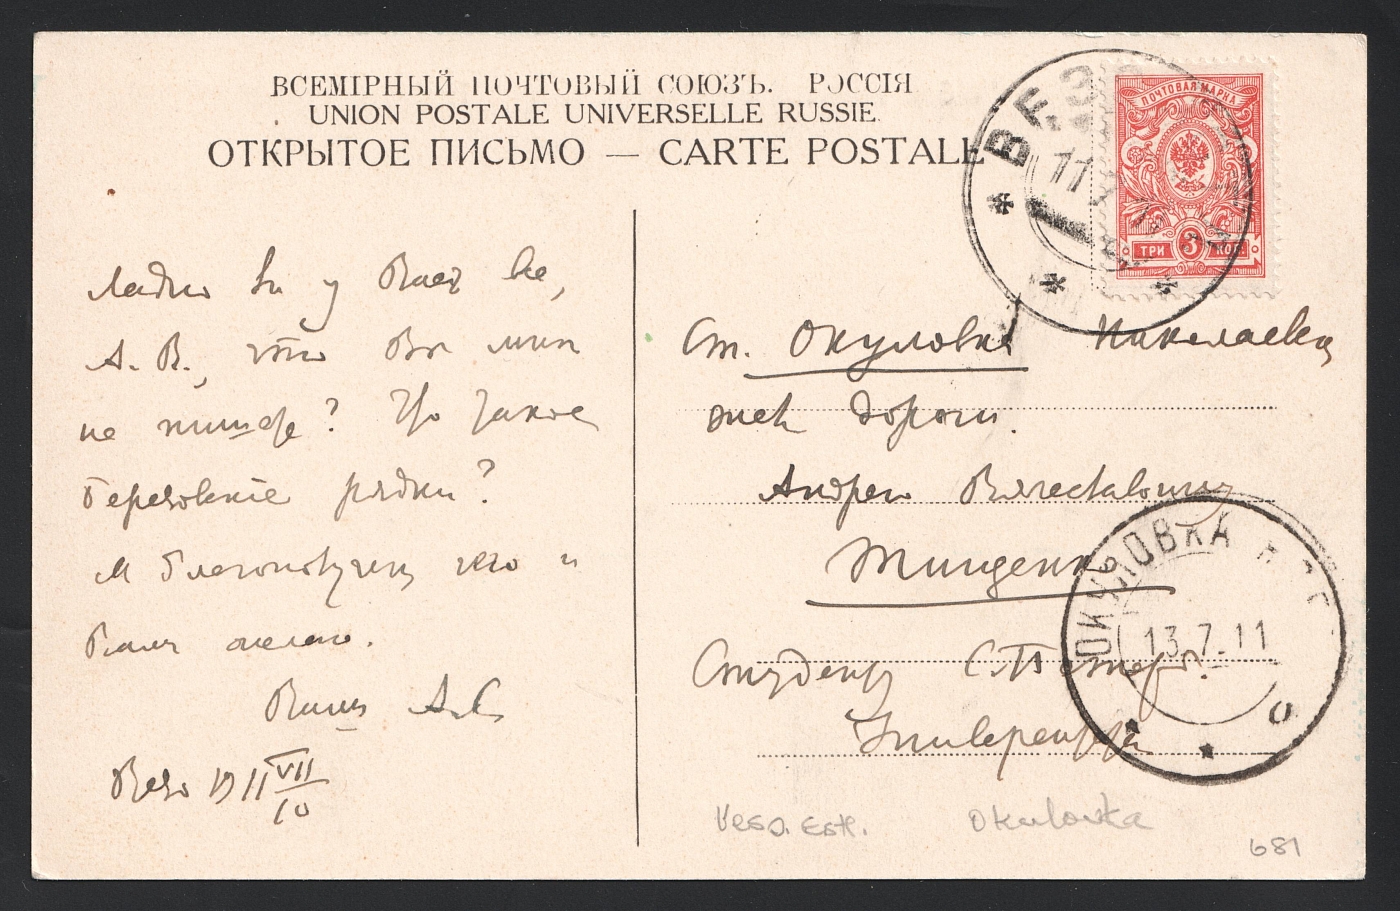 ВСЕМІРНЫЙ ПОЧТОВЫЙ СОЮЗЪ. РОССІЯ
UNION POSTALE UNIVERSELLE RUSSIE.
ОТКРЫТОЕ ПИСЬМО — CARTE POSTALE
ПОЧТОВАЯ МАРКА
ТРИ 3 КОП.
11
Ладно ли у Васъ все,
А. В., что Вы мнѣ
не пишете? Что такое
Березовскіе рядки?
Вамъ желаю.
Вашъ А.С.
Везо 1911 VII
10
Ст. Окуловка Николаевск
жел дороги.
Андрею Вячеславовичу
Тищенко
Студенту С.Петерб.
Университета
ОКУЛОВКА
13.7.11
Veso. Estl. Okulovka
681